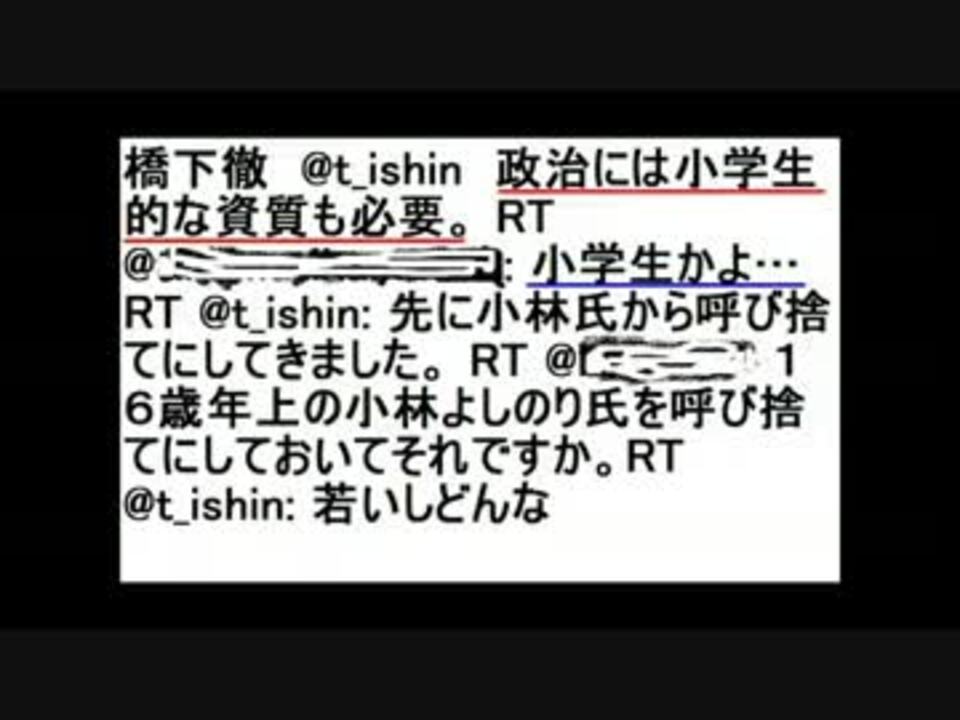 橋下徹　@t_ishin　政治には小学生
的な資質も必要。 RT
@ : 小学生かよ…
RT @t_ishin: 先に小林氏から呼び捨
てにしてきました。 RT @ 1
6歳年上の小林よしのり氏を呼び捨
てにしておいてそれですか。RT
@t_ishin: 若いしどんな